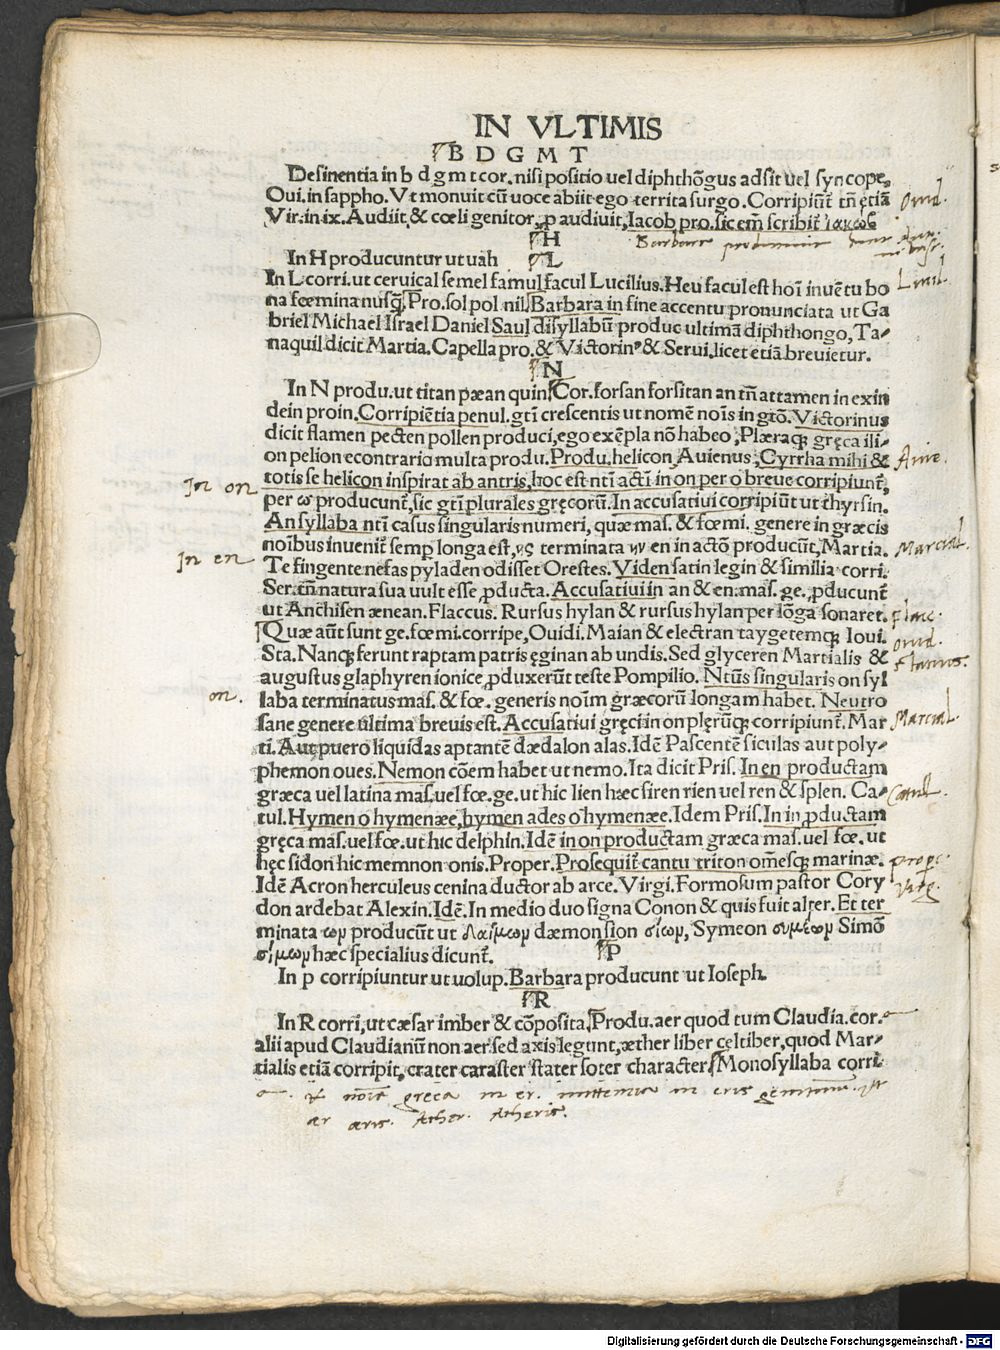 IN VLTIMIS
B D G M T
Desinentia in b d g m t cor. nisi positio uel diphthõgus adsit uel syncope,
Oui. in sappho. Vt monuit cũ uoce abiit ego territa surgo. Corripiũt tñ etiã
Vir. in ix. Audiit & cœli genitor, ꝑ audiuit, Iacob pro. sic em̃ scribit̃ ἰακωβ
Ouid.
H
In H producuntur ut uah
L
In L corri. ut ceruical semel famul facul Lucilius. Heu facul est hoĩ inuẽtu bo
na fœmina nusq̃. Pro. sol pol nil. Barbara in fine accentu pronunciata ut Ga
briel Michael Israel Daniel Saul disyllabũ produc ultimã diphthongo, Ta-
naquil dicit Martia. Capella pro. & Victorinꝰ & Serui. licet etiã breuietur.
Lucil.
N
In N produ. ut titan pæan quin. Cor. forsan forsitan an tñ attamen in exin
dein proin. Corripiẽtia penul. gtĩ crescentis ut nomẽ noĩs in gtõ. Victorinus
dicit flamen pecten pollen produci, ego exẽpla nõ habeo, Plæraq; gręca ili-
on pelion econtrario multa produ. Produ. helicon Auienus, Cyrrha mihi &
totis se helicon inspirat ab antris, hoc est ntĩ actĩ in on per o breue corripiunt̃,
per ω producunt̃, sic gtĩ plurales gręcorũ. In accusatiui corripiũt ut thyrsin.
An syllaba ntĩ casus singularis numeri, quæ mas. & fœmi. genere in græcis
noĩbus inuenit̃ semp longa est, ης terminata ην en in actõ producũt, Martia.
Te fingente nefas pyladen odisset Orestes. Viden satin legin & similia corri.
Ser. tñ natura sua uult esse ꝓducta. Accusatiui in an & en. mas. ge. ꝓducunt̃
ut Anchisen ænean. Flaccus. Rursus hylan & rursus hylan per lõga sonaret.
Quæ aũt sunt ge. fœmi. corripe, Ouidi. Maian & electran taygetemq; Ioui.
Sta. Nanq; ferunt raptam patris ęginan ab undis. Sed glyceren Martialis &
augustus glaphyren ionice ꝓduxerũt teste Pompilio. Ntũs singularis on syl
laba terminatus mas. & fœ. generis noĩm græcorũ longam habet. Neutro
sane genere ultima breuis est. Accusatiui gręci in on plęrũq; corripiunt̃. Mar
ti. Aut puero liquidas aptantẽ dædalon alas. Idẽ Pascentẽ siculas aut poly-
phemon oues. Nemon cõem habet ut nemo. Ita dicit Pris. In en productam
græca uel latina mas. uel fœ. ge. ut hic lien hæc siren rien uel ren & splen. Ca-
tul. Hymen o hymenæe, hymen ades o hymenæe. Idem Pris. In in ꝓductam
gręca mas. uel fœ. ut hic delphin. Idẽ in on productam græca mas. uel fœ. ut
hęc sidon hic memnon onis. Proper. Prosequit̃ cantu triton om̃esq; marinæ.
Idẽ Acron herculeus cenina ductor ab arce. Virgi. Formosum pastor Cory
don ardebat Alexin. Idẽ. In medio duo signa Conon & quis fuit alter. Et ter
minata ων producũt ut δαίμων dæmon sion σίων, Symeon συμέων Simõ
σίμων hæc specialius dicunt̃.
In on
In en
on.
Marcial.
Flacc.
Ouid.
Marcial.
Catull.
Proper.
Virg.
P
In p corripiuntur ut uolup. Barbara producunt ut Ioseph.
R
In R corri, ut cæsar imber & cõposita. Produ. aer quod tum Claudia. cor.
alii apud Claudianũ non aer sed axis legunt, æther liber celtiber, quod Mar-
tialis etiã corripit, crater caraster stater soter character. Monosyllaba corri
aer aeris. Aether. Aetheris.
Digitalisierung gefördert durch die Deutsche Forschungsgemeinschaft - DFG